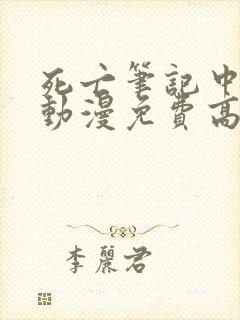 死亡筆記中
動漫免費高
李麗君